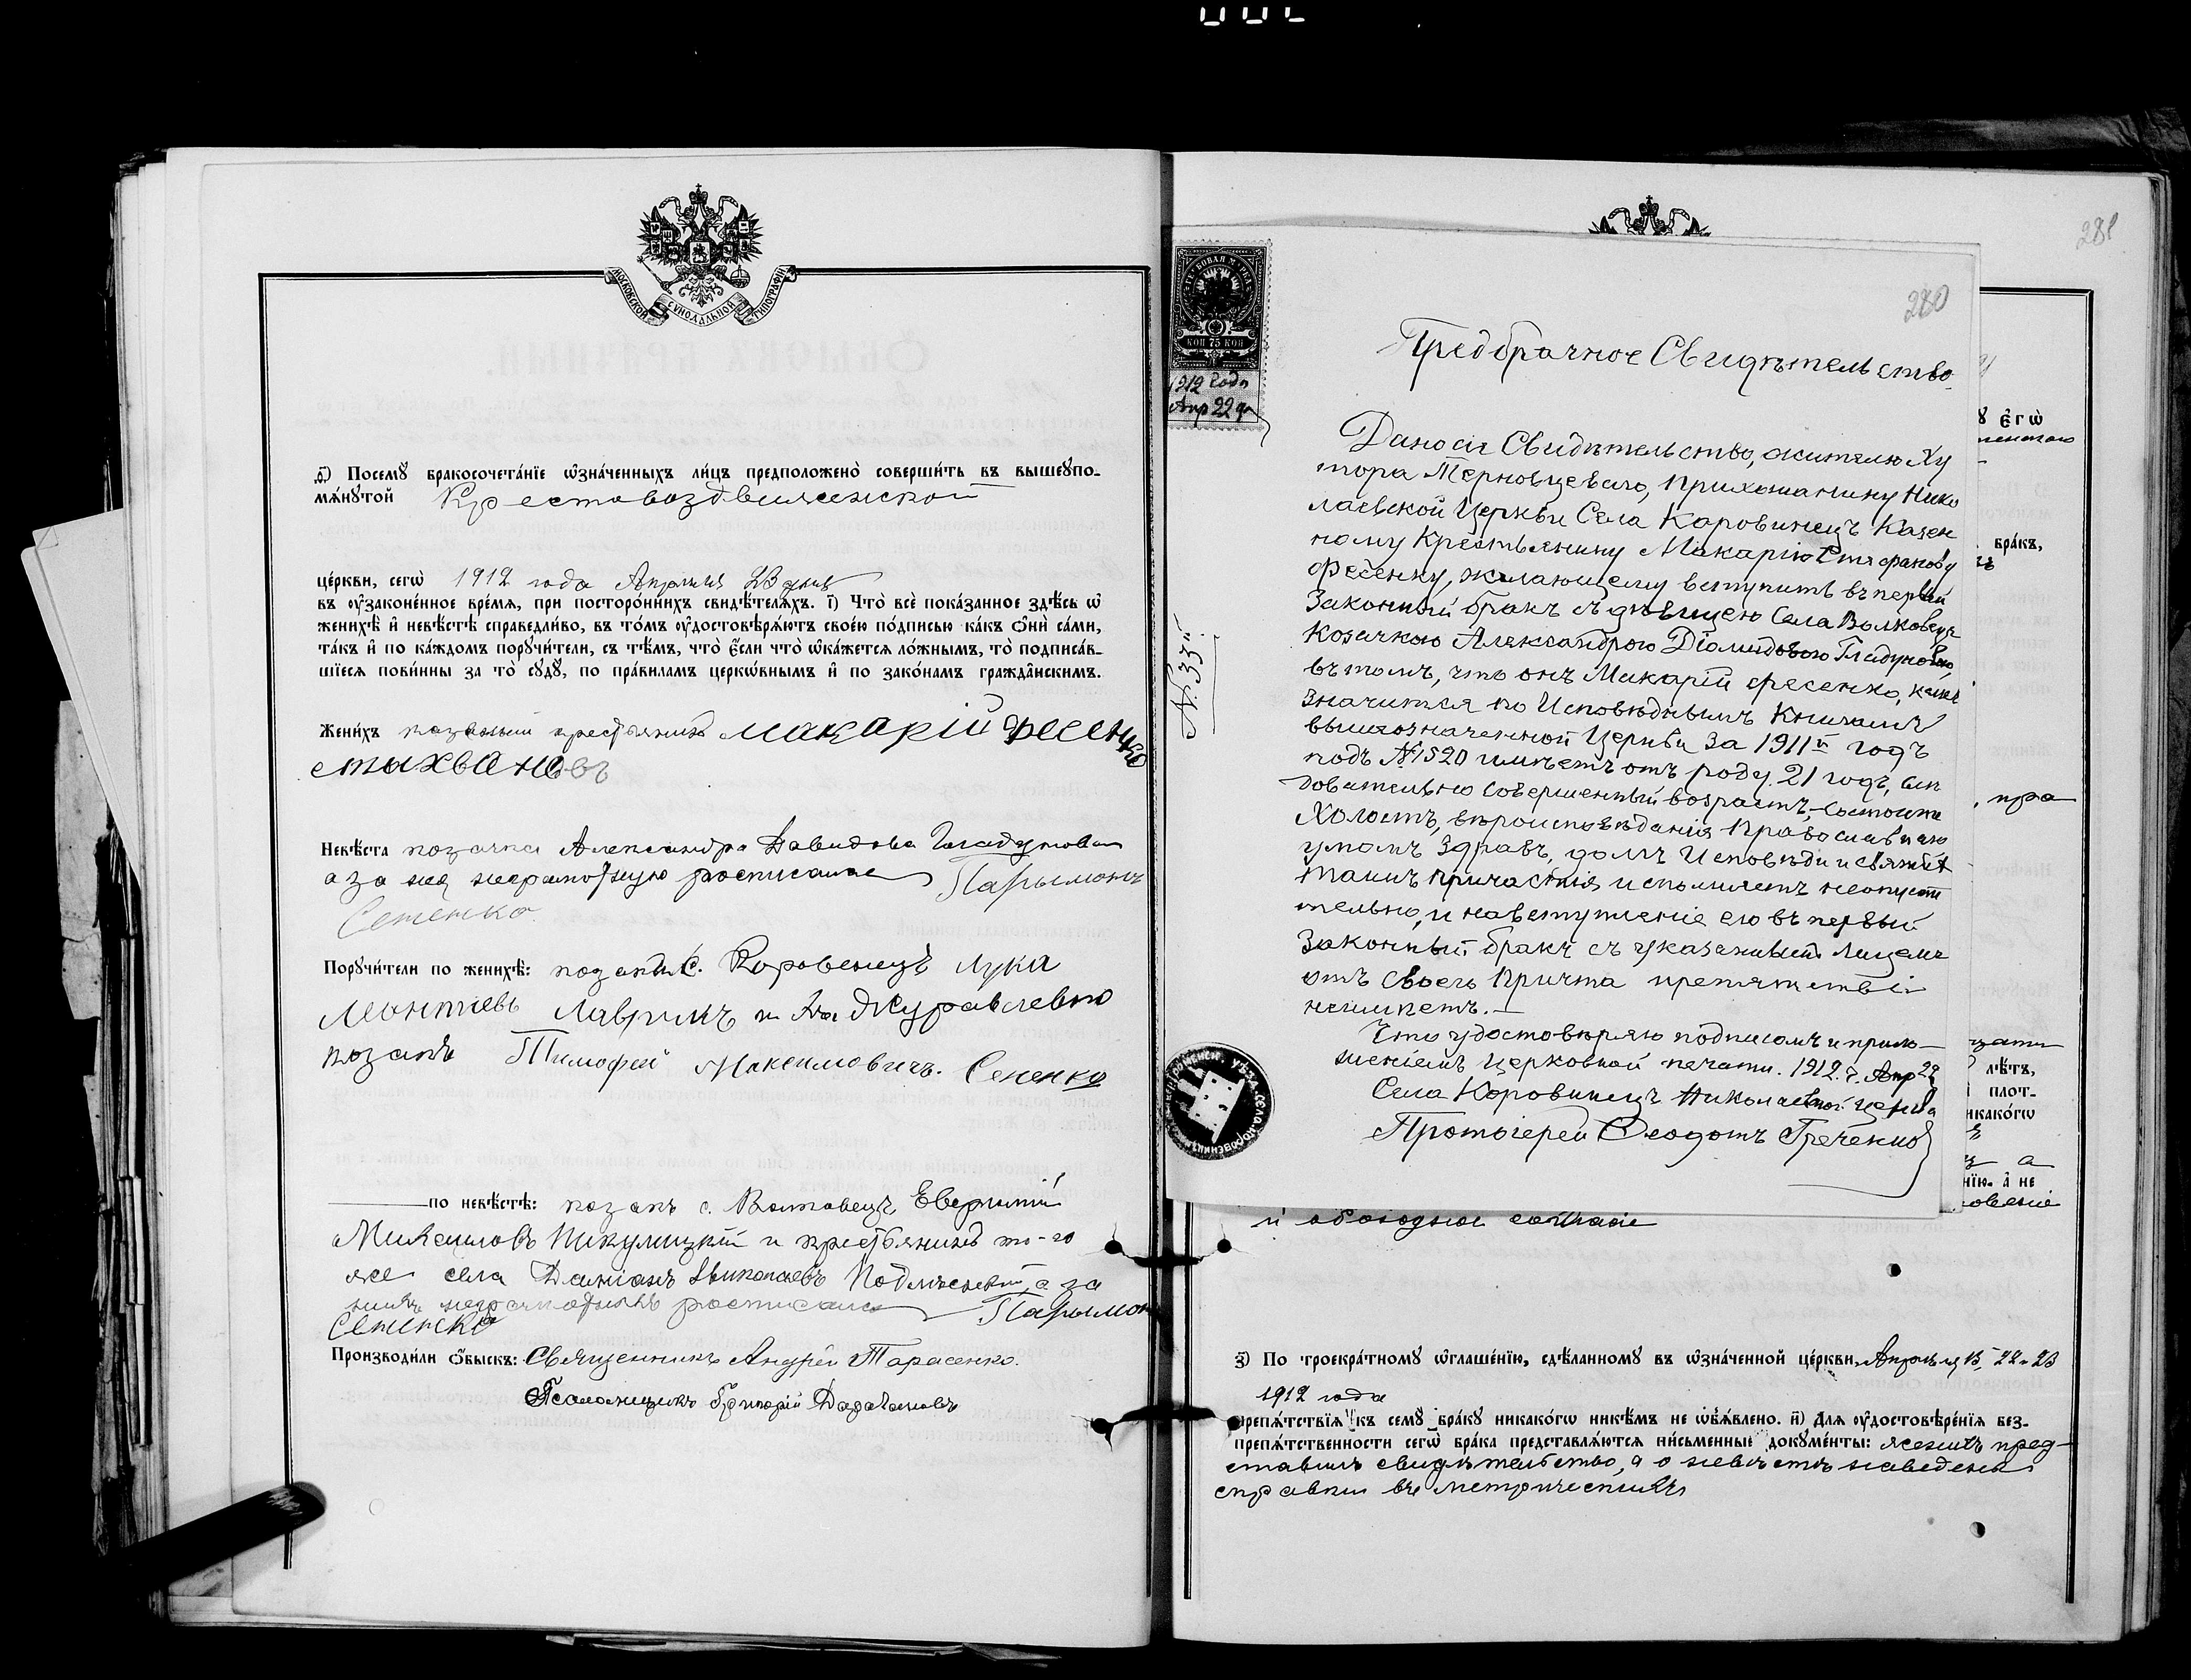 МОСКОВСКОЙ СУНОДАЛЬНОЙ ТИПОГРАФІИ
Посемꙋ бракосочета́нїе ѡ҆зна́ченныхъ ли́цъ предположено̀ соверши́ть въ вышеꙋпо-
мѧ́нꙋтой Крестовоздвиженской
це́ркви, сегѡ̀ 1912 года Апрѣля 23 дня
въ ᲂу҆законе́нное вре́мѧ, при посторо́ннихъ свидѣ́телѧхъ. і҃) Что̀ всѐ пока́занное здѣ́сь ѡ҆
женихѣ̀ и҆ невѣ́стѣ справедли́во, въ то́мъ ᲂу҆достовѣрѧ́ютъ свое́ю по́дписью ка́къ ѻ҆нѝ са́ми,
та́къ и҆ по ка́ждомъ порꙋчи́тели, съ тѣ́мъ, что̀ є҆́сли что̀ ѡ҆ка́жетсѧ ло́жнымъ, то̀ подписа́в-
шїесѧ пови́нны за то̀ сꙋдꙋ̀, по пра́виламъ церко́внымъ и҆ по зако́намъ гражда̑нскимъ.
Жени́хъ казенный крестьянинъ Макарій Фесенко
стыхвановъ
Невѣ́ста козачка Александра Давидова Гладунова
а за нея неграмотную росписался Парымонъ
Сененко
Порꙋчи́тели по женихѣ̀: козакъ с. Коровенецъ Лука
Леонтіевъ Лаврикъ и Журавлевко
козакъ Тимофей Максимовичъ. Сененко
по невѣ́стѣ: козакъ с. Волковецъ Евфимій
Михаиловъ Пикулицкій и крестьянинъ то-го
же села Даміанъ Николаевъ Подлѣсный, а за
нихъ неграмотныхъ росписался Парымонъ
Сененко
Производи́ли ѻ҆́быскъ: Священникъ Андрей Тарасенко.
Псаломщикъ Григорій
281
280
ГЕРБОВАЯ МАРКА
КОП 75 КОП
1912 года
Апр 22 дн
Предбрачное Свидѣтельство
Дано сіе Свидѣтельство, жителю Ху
тора Терновцеваго, Прихожанину Нико
лаевской Церкви Села Коровинецъ Казен
ному Крестьянину Макарію Стефанову
Фесенку, желающему вступить въ первый
Законный бракъ съ дѣвицею Села Волковецъ
Козачкою Александрою Діомидовою Гладуновою,
въ томъ, что онъ Макарій Фесенко, какъ
значится по Исповѣднымъ Книгамъ
вышеозначенной Церкви за 1911й годъ
подъ №1520 имѣетъ отъ роду 21 годъ, слѣ
довательно совершенный возрастъ, состоитъ
Холостъ, вѣроисповѣданія Православнаго
умомъ здравъ, долгъ Исповѣди и святыхъ
Таинъ причастія исполняетъ неопусти
тельно, и на вступленіе его въ первый
Законный бракъ съ указаннымъ лицемъ
отъ своего Причта препятствій
не имѣетъ.
Что удостовѣряю подписомъ и прило-
женіемъ церковной печати. 1912. г. Апр 22
Села Коровинецъ Николаевской церкви
Протоіерей Феодотъ Греченко
№ 33й
ꙋ є҆гѡ̀
бра́къ,
, пра
лѣ́тъ,
плот-
никако́гѡ
а
нїю. а҆ не
и обоюдное согласіе
з҃) По троекра́тномꙋ ѡ҆глаше́нїю, сдѣ́ланномꙋ въ ѡ҆зна́ченной це́ркви, Апрѣля 15, 22 и 23
1912 года
препѧ́тствїѧ къ семꙋ̀ бра́кꙋ никако́гѡ никѣ́мъ не ѡ҆б̾ѧ́влено. и҃) Длѧ ᲂу҆достовѣре́нїѧ без-
препѧ́тственности сегѡ̀ бра́ка представлѧ́ютсѧ пи́сьменные докꙋме́нты: женихъ пред-
ставилъ свидѣтельство, а о невѣстѣ наведены
справки въ метрическихъ